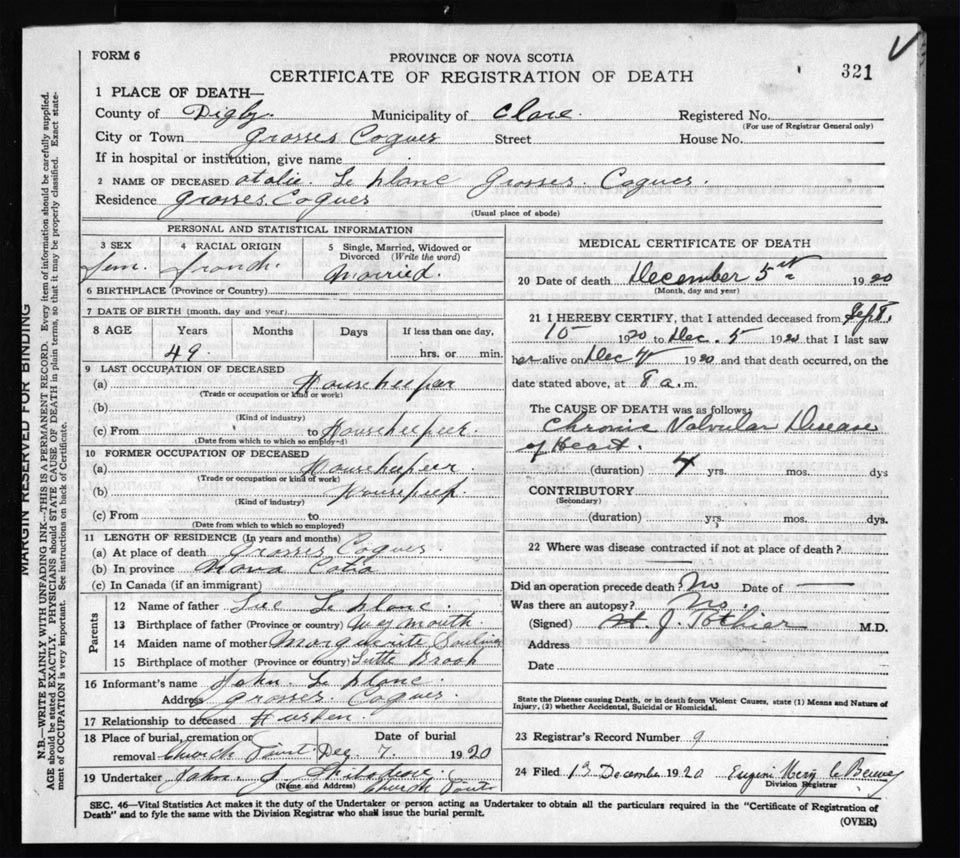 FORM 6
PROVINCE OF NOVA SCOTIA
CERTIFICATE OF REGISTRATION OF DEATH
321
1 PLACE OF DEATH—
County of Digby Municipality of Clare. Registered No.
(For use of Registrar General only)
City or Town Grosses Coques Street House No.
If in hospital or institution, give name
2 NAME OF DECEASED otalie. Le blanc Grosses. Coques.
Residence Grosses. Coques
(Usual place of abode)
PERSONAL AND STATISTICAL INFORMATION
3 SEX 4 RACIAL ORIGIN 5 Single, Married, Widowed or Divorced (Write the word)
fem. french. Married.
6 BIRTHPLACE (Province or Country)
7 DATE OF BIRTH (month, day and year)
8 AGE Years Months Days If less than one day,
49. hrs. or min.
9 LAST OCCUPATION OF DECEASED
(a) Housekeeper
(Trade or occupation or kind or work)
(b)
(Kind of industry)
(c) From to Housekeeper
(Date from which to which so employ-d)
10 FORMER OCCUPATION OF DECEASED
(a) Housekeeper.
(Trade or occupation or kind of work)
(b) Housekeep.
(Kind of industry)
(c) From to
(Date from which to which so employed)
11 LENGTH OF RESIDENCE (In years and months)
(a) At place of death Grosses Coques
(b) In province Nova Cotia
(c) In Canada (if an immigrant)
Parents
12 Name of father Luc Le blanc.
13 Birthplace of father (Province or country) Weymouth.
14 Maiden name of mother Marguerite
15 Birthplace of mother (Province or country) Brook
16 Informant's name John. Le blanc.
Address Grosses Coques.
17 Relationship to deceased Husben.
18 Place of burial, cremation or removal Church Point. Date of burial Dec. 7. 1920
19 Undertaker John. J. Thibodeau.
(Name and Address) Church Point
MEDICAL CERTIFICATE OF DEATH
20 Date of death December 5th 1920
(Month, day and year)
21 I HEREBY CERTIFY, that I attended deceased from Sept.
15 1920 to Dec. 5 1920 that I last saw
her alive on Dec 4 1920 and that death occurred, on the
date stated above, at 8 a.m.
The CAUSE OF DEATH was as follows:
Chronic Valvular Disease
of Heart.
(duration) 4 yrs. mos. dys
CONTRIBUTORY
(Secondary)
(duration) yrs. mos. dys.
22 Where was disease contracted if not at place of death?
Did an operation precede death? No Date of —
Was there an autopsy? No.
(Signed) H. J. Pothier M.D.
Address
Date
State the Disease causing Death, or in death from Violent Causes, state (1) Means and Nature of
Injury, (2) whether Accidental, Suicidal or Homicidal.
23 Registrar's Record Number 9
24 Filed 13 December 1920 Eugène
Division Registrar
SEC. 46—Vital Statistics Act makes it the duty of the Undertaker or person acting as Undertaker to obtain all the particulars required in the "Certificate of Registration of
Death" and to fyle the same with the Division Registrar who shall issue the burial permit.
(OVER)
MARGIN RESERVED FOR BINDING
N.B.—WRITE PLAINLY WITH UNFADING INK—THIS IS A PERMANENT RECORD. Every item of information should be carefully supplied.
AGE should be stated EXACTLY. PHYSICIANS should STATE CAUSE OF DEATH in plain terms, so that it may be properly classified. Exact state-
ment of OCCUPATION is very important. See instructions on back of Certificate.